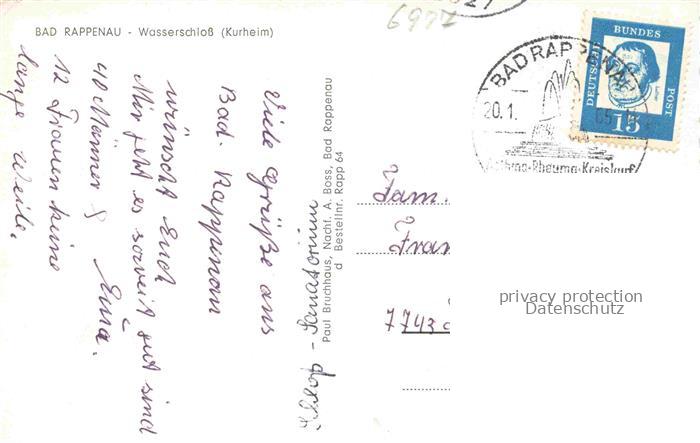 6927
BAD RAPPENAU - Wasserschloß (Kurheim)
Viele Grüße aus
Bad. Rappenau
wünscht Euch
Mir geht es soweit gut sind
40 Männer &
12 Frauen keine
lange Weile.
Erna.
Schloß - Sanatorium
Paul Bruchhaus, Nachf. A. Boss, Bad Rappenau
d Bestellnr. Rapp 64
BAD RAPPENAU
20.1.
65
Asthma-Rheuma-Kreislauf
DEUTSCHE
BUNDES
POST
15
Fam.
Fran
7743
privacy protection
Datenschutz